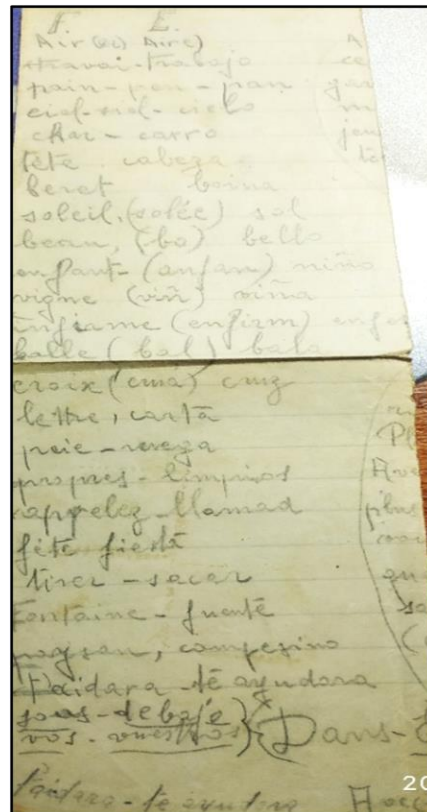 F. E.
Air (er) Aire) A
travai-trabajo ce
pain-pen-pan gar
ciel-siel-cielo m
char-carro jeu
tête cabeza tê
beret boina
soleil, (solée) sol
beau, (bo) bello
enfant-(anfan) niño
vigne (viñ) viña
infirme (enfirm) enfer
balle (bal) bala
croix (cruá) cruz
lettre, carta
Pl
propres-limpios Ave
appelez-llamad plus
fête fiesta
tirer-sacar qu
Fontaine-fuente sa
paysan, campesino (
T'aidara-te ayudara
sous-debaje
vos-vuestros} Dans-
t'aidara-te ayudara
20